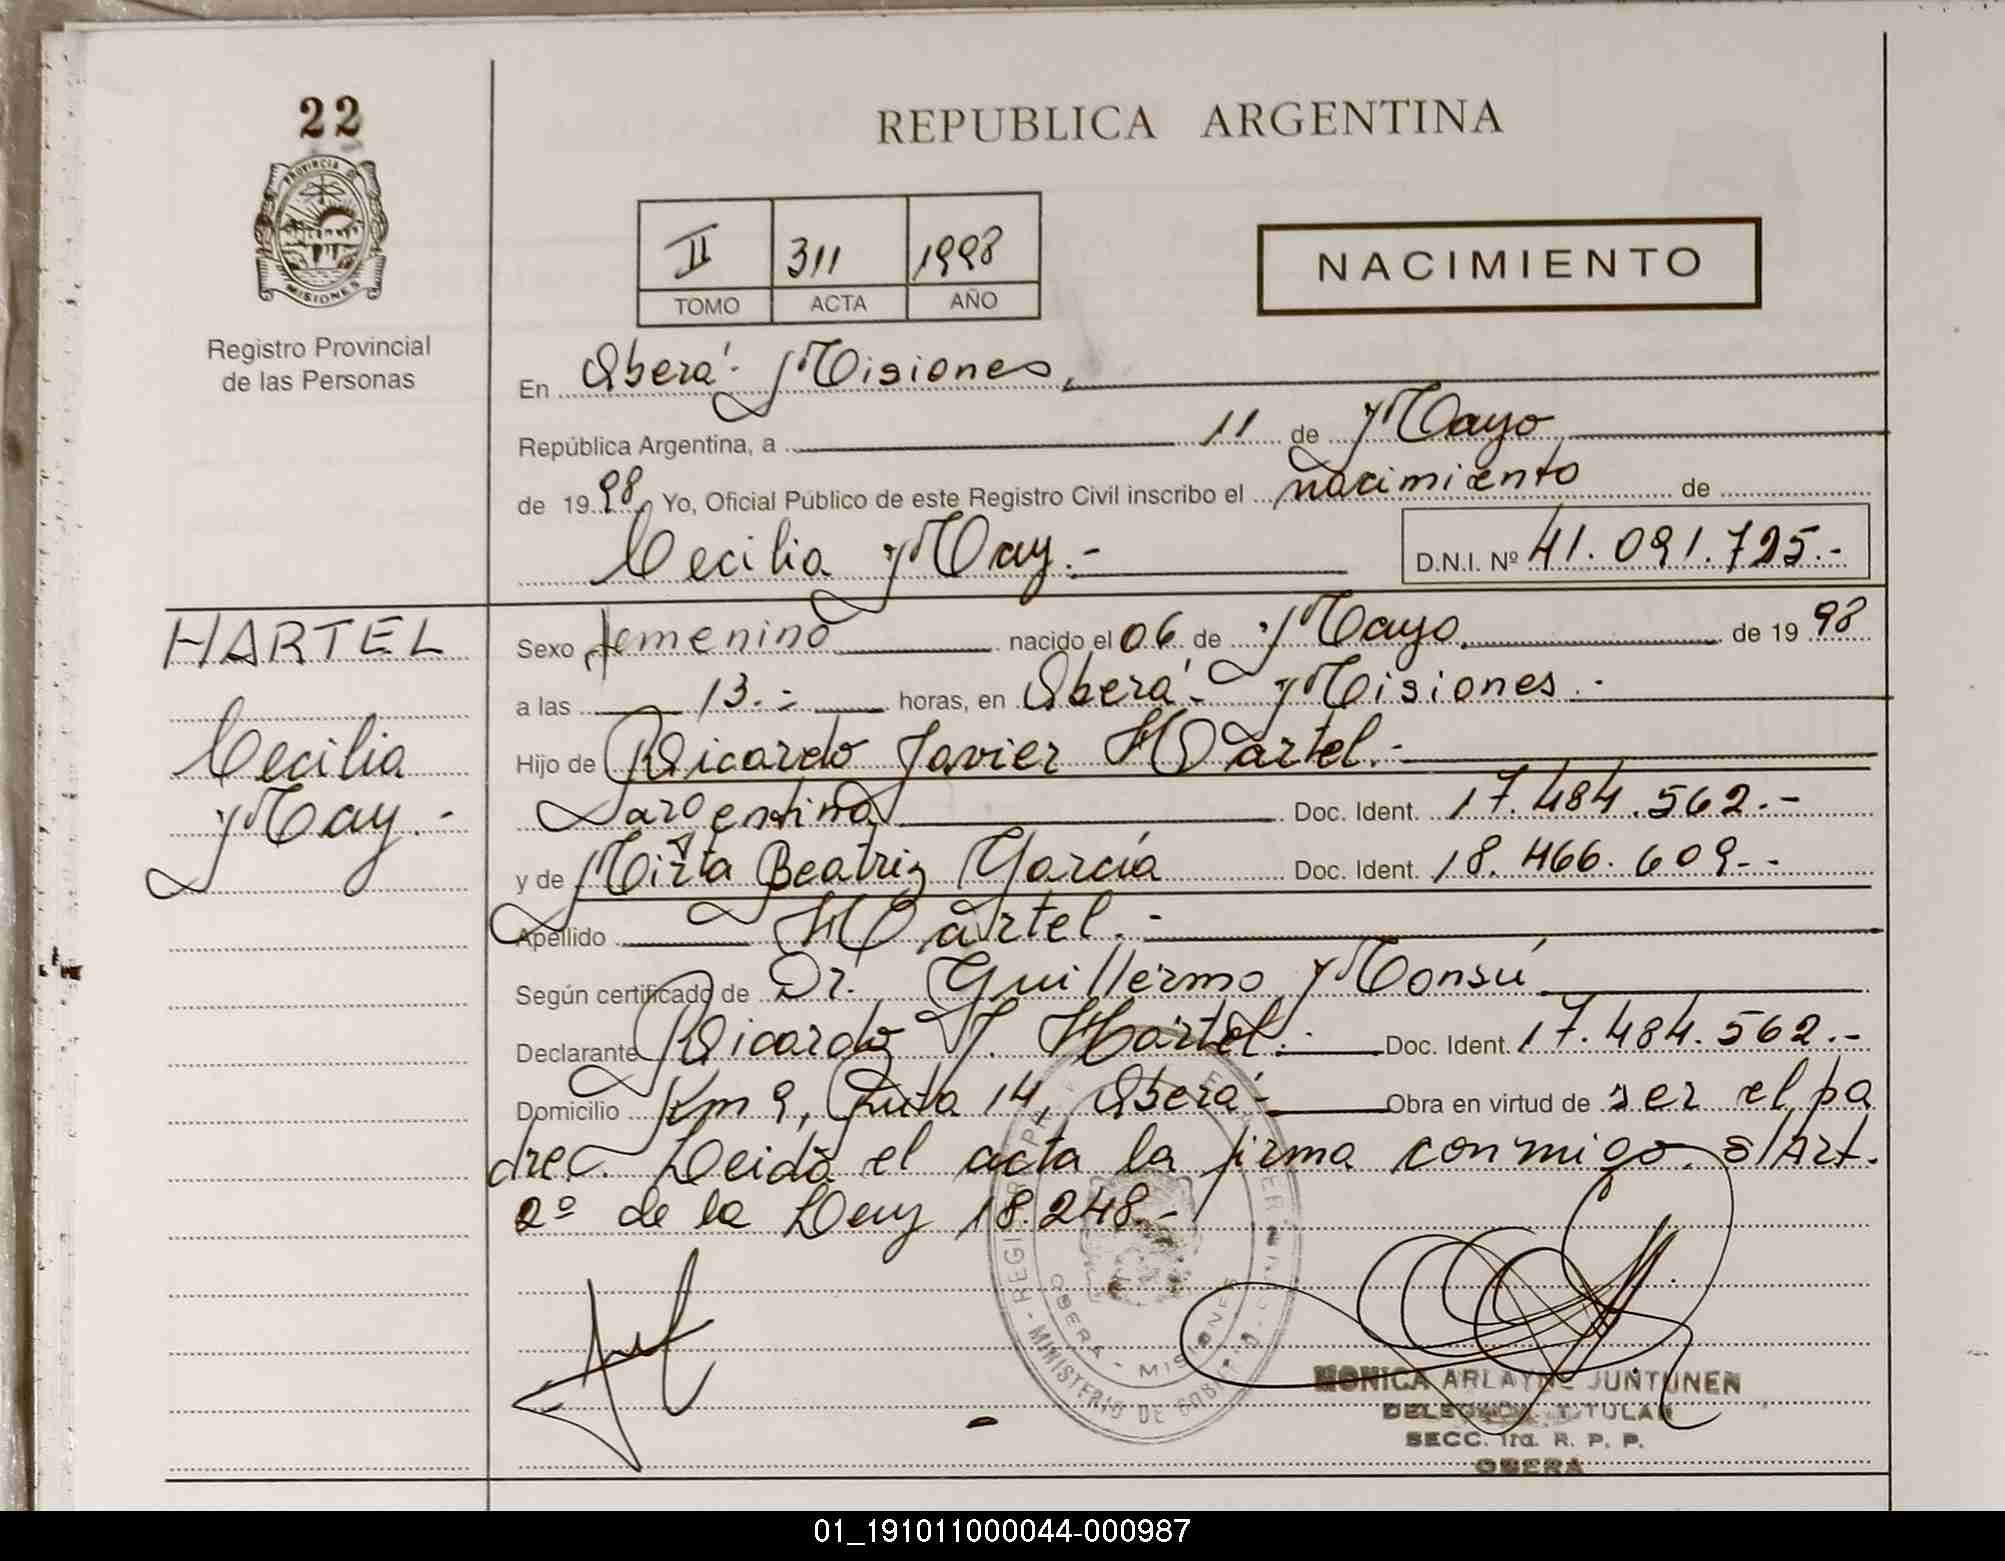 22
REPUBLICA ARGENTINA
PROVINCIA DE
MISIONES
Registro Provincial
de las Personas
II 311 1998
TOMO ACTA AÑO
NACIMIENTO
En Oberá - Misiones,
República Argentina, a 11 de Mayo
de 1998, Yo, Oficial Público de este Registro Civil inscribo el nacimiento de
Cecilia May.- D.N.I. Nº 41.091.725.-
HARTEL
Cecilia
May.-
Sexo femenino nacido el 06 de Mayo de 1998
a las 13.- horas, en Oberá - Misiones.-
Hijo de Ricardo Javier Hartel.-
argentino Doc. Ident. 17.484.562.-
y de Mirta Beatriz García Doc. Ident. 18.466.609.-
Apellido Hartel.-
Según certificado de Dr. Guillermo Monsú
Declarante Ricardo J. Hartel.- Doc. Ident. 17.484.562.-
Domicilio Km 9, Ruta 14, Oberá - Obra en virtud de ser el pa
dre. Leida el acta la firma conmigo. s/Art.
2º de la Ley 18.248.-
OBERA - MISIONES
MINISTERIO DE GOBIERNO
MONICA ARLAYNE JUNTUNEN
DELEGADA TITULAR
SECC. 1ra. R. P. P.
OBERA
01_191011000044-000987